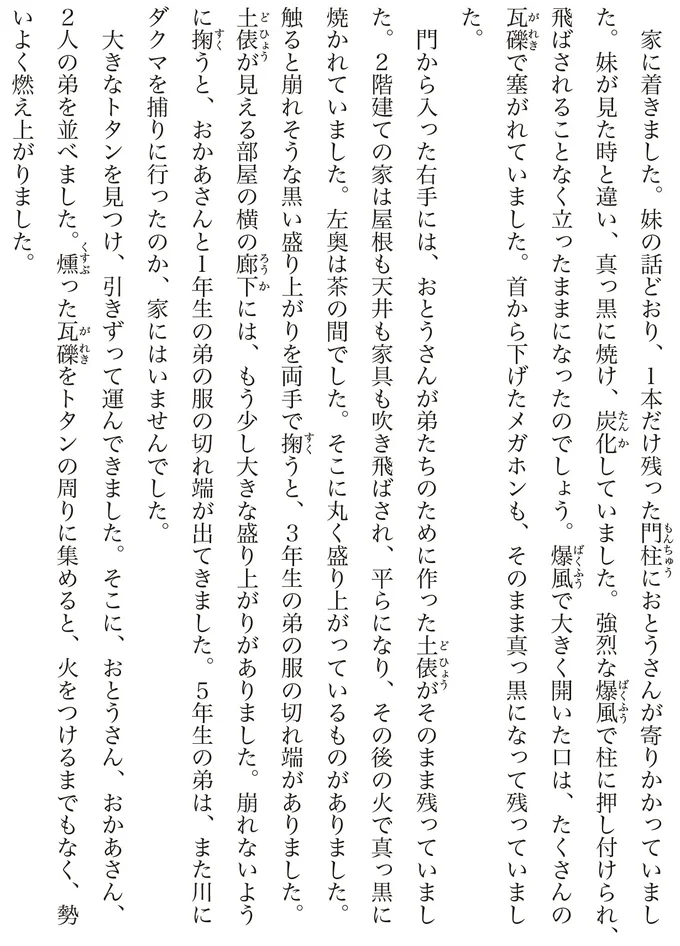 家に着きました。妹の話どおり、1本だけ残った門柱におとうさんが寄りかかっていまし
た。妹が見た時と違い、真っ黒に焼け、炭化していました。強烈な爆風で柱に押し付けられ、
飛ばされることなく立ったままになったのでしょう。爆風で大きく開いた口は、たくさんの
瓦礫で塞がれていました。首から下げたメガホンも、そのまま真っ黒になって残っていまし
た。
　門から入った右手には、おとうさんが弟たちのために作った土俵がそのまま残っていまし
た。2階建ての家は屋根も天井も家具も吹き飛ばされ、平らになり、その後の火で真っ黒に
焼かれていました。左奥は茶の間でした。そこに丸く盛り上がっているものがありました。
触ると崩れそうな黒い盛り上がりを両手で掬うと、3年生の弟の服の切れ端がありました。
土俵が見える部屋の横の廊下には、もう少し大きな盛り上がりがありました。崩れないよう
に掬うと、おかあさんと1年生の弟の服の切れ端が出てきました。5年生の弟は、また川に
ダクマを捕りに行ったのか、家にはいませんでした。
　大きなトタンを見つけ、引きずって運んできました。そこに、おとうさん、おかあさん、
2人の弟を並べました。燻った瓦礫をトタンの周りに集めると、火をつけるまでもなく、勢
いよく燃え上がりました。